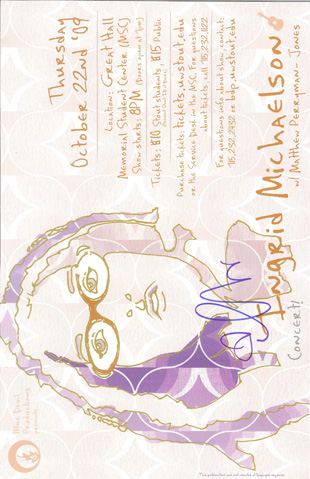 Thursday
October 22nd '09
Location: Great Hall
Memorial Student Center (MSC)
Show starts: 8PM (Doors open at 7pm)
Tickets: $10 Stout students $15 Public
Purchase tickets: tickets.uwstout.edu
or the Service Desk in the MSC. For questions
about tickets, call 715.232.1122
For questions/info about show contact:
715.232.2432 or bdp.uwstout.edu
Ingrid Michaelson
w/ Matthew Perryman-Jones
CONCERT!
Blue Devil
Productions